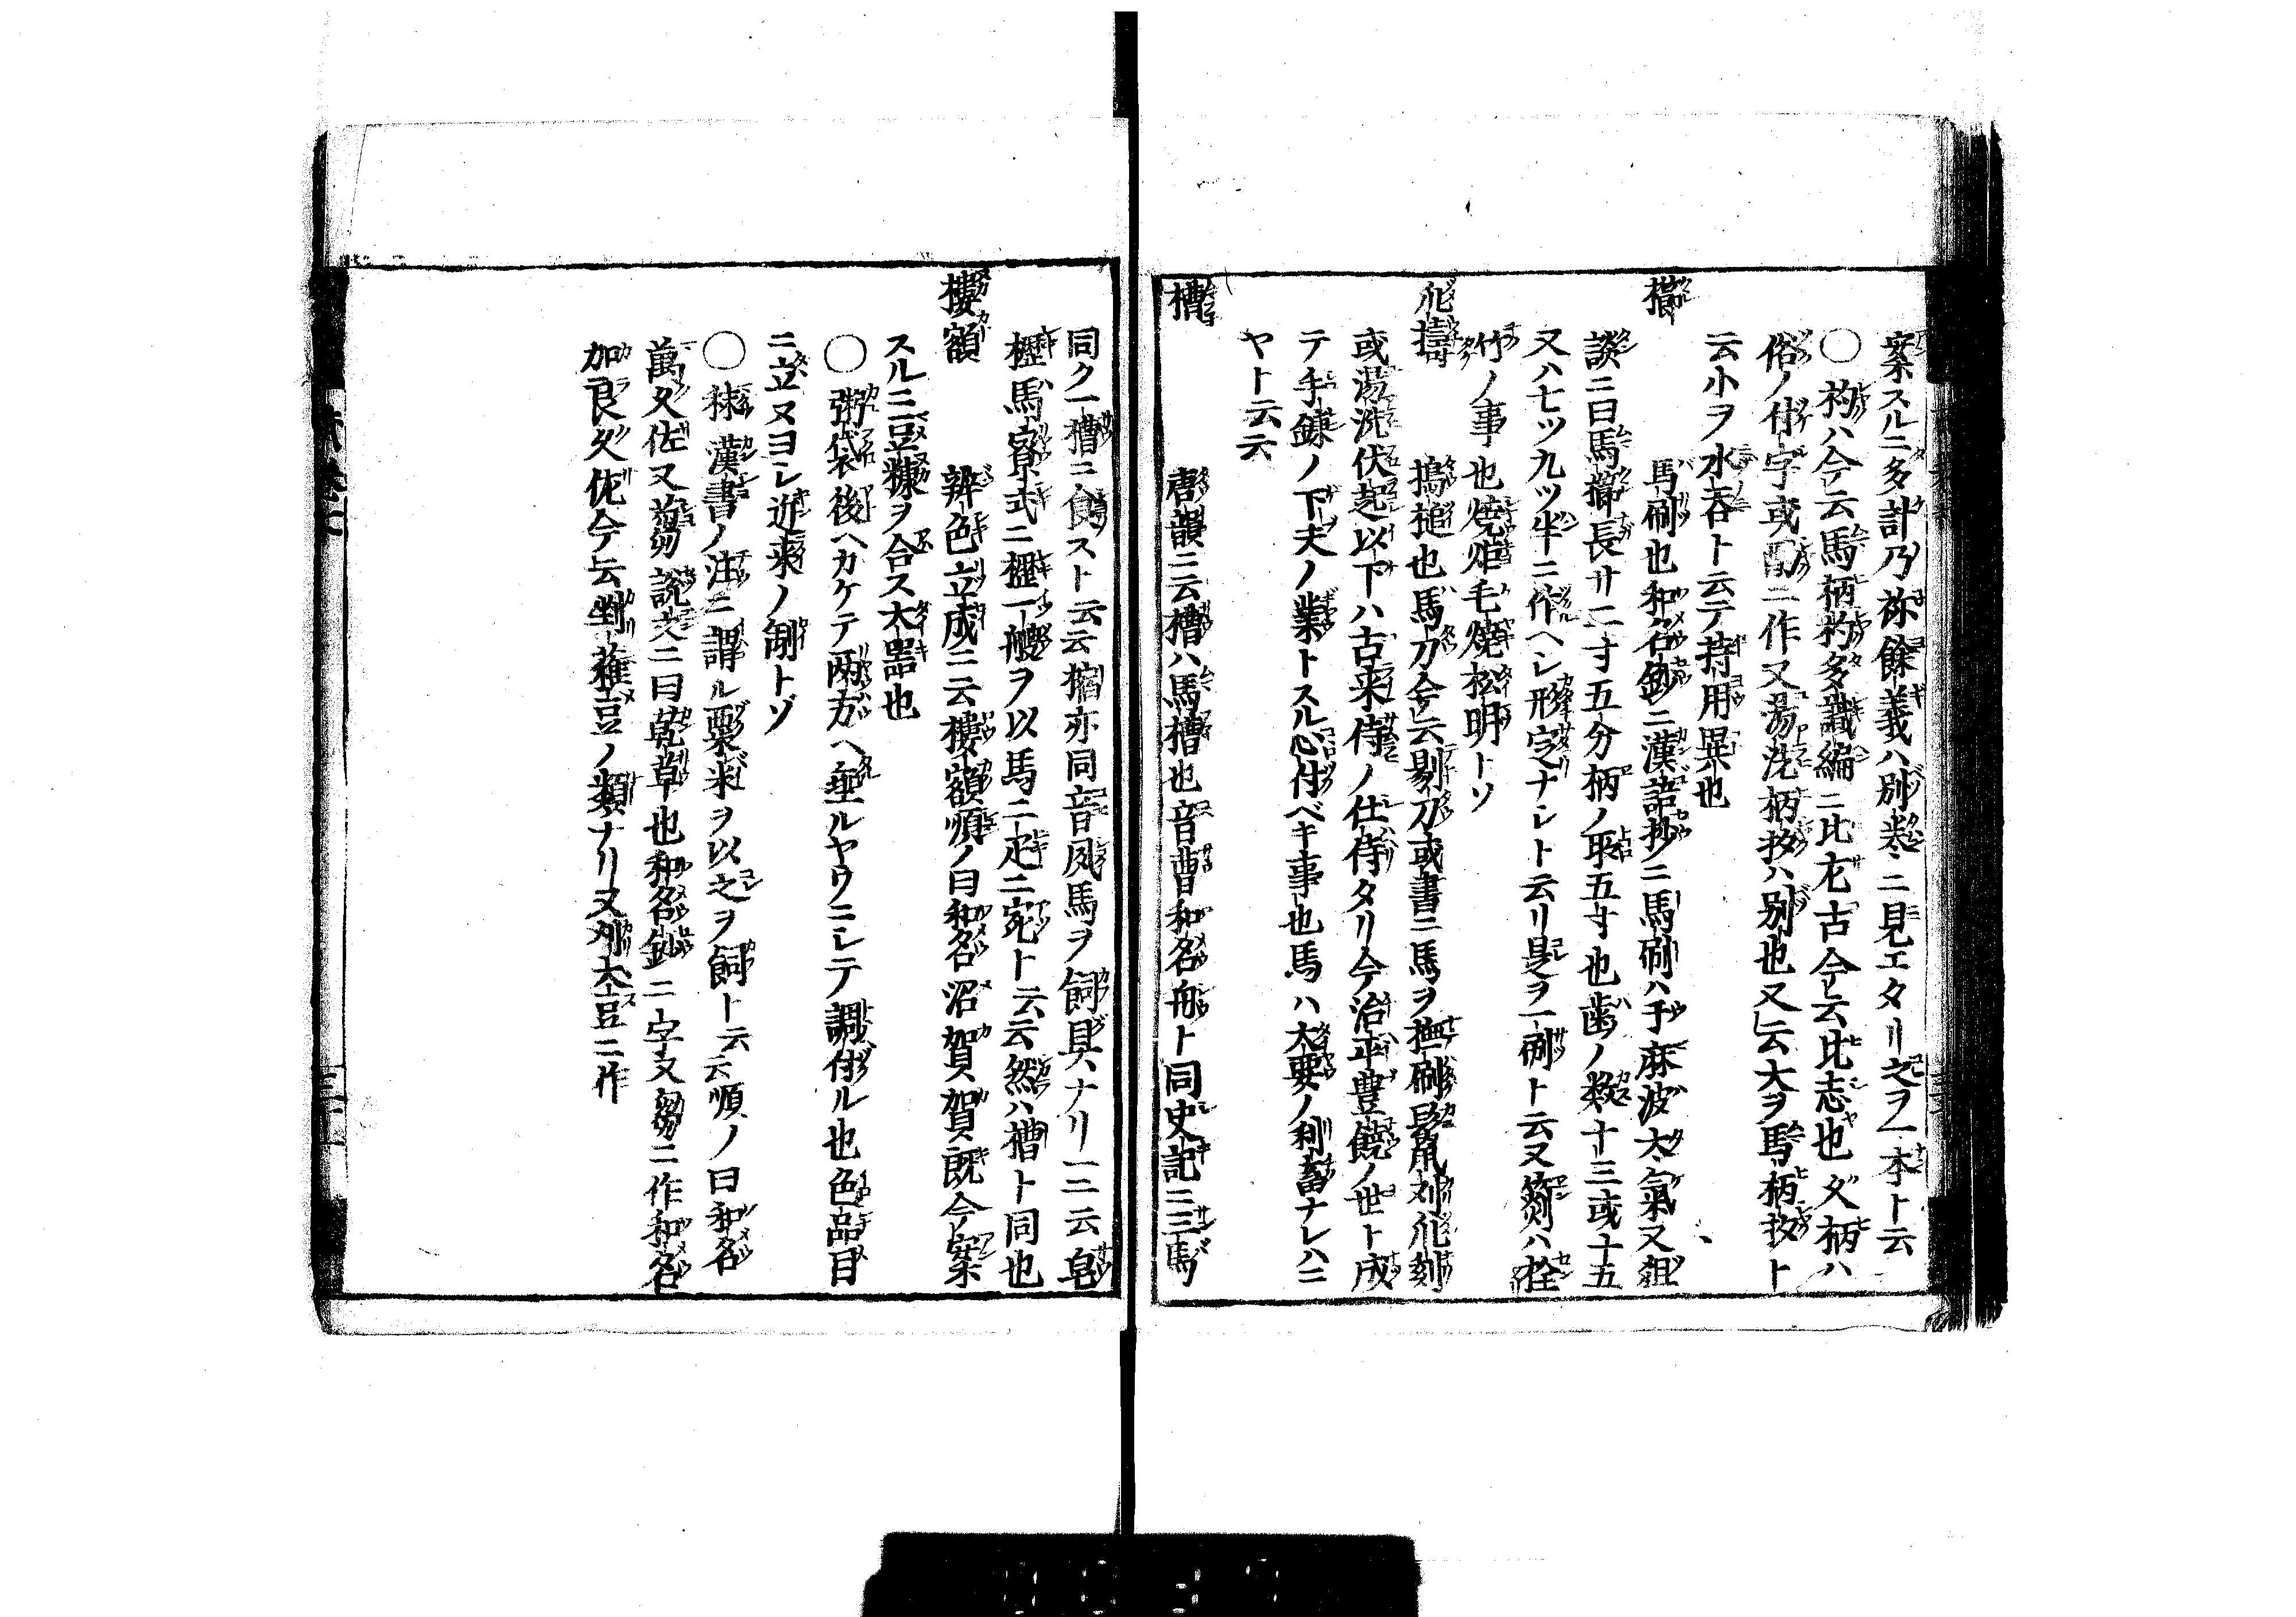 案スルニ多計乃祢餘義ハ別巻ニ見エタリ之ヲ一本ト云
〇杓ハ今云馬柄杓多識編ニ比左古今云比志也又柄ハ
俗ノ付字或ニ作又湯洗柄杓ハ別也又云大ヲ馬柄杓ト
云小ヲ水呑ト云テ持用異也
馬刷也和名鈔ニ漢語抄ニ馬刷ハ于麻波太氣又
談ニ曰馬櫛長廿二寸五分柄ノ取五寸也歯ノ数十三或十五
又ハ七ツ九ツ半ニ作ヘシ形定ナシト云リ是ヲ一刷ト云又ハ栓
竹ノ事也焼炬毛焼松明トソ
搗槌也馬刀今云剔刀或書ニ馬ヲ撫刷
或湯洗伏起以下ハ古来侍ノ仕侍タリ今治平豊饒ノ世ト成
テ手鎌ノ下夫ノ業トスル心付ベキ事也馬ハ大要ノ利畜ナレハニ
ヤト云云
槽 唐韻ニ云槽ハ馬槽也音曹和名舟ト同史記ニ三馬
同ク一槽ニ食スト云云亦同音馬ヲ飼具ナリ一ニ云皂
櫪馬寮式ニ櫪一艘ヲ以馬二疋ニ宛ト云云然ハ槽ト同也
樓額 辨色立成ニ云樓額順ノ曰和名沼賀賀既今案
スルニ豆糠ヲ合ス大器也
〇粥袋後ヘカケテ両方ヘ垂ルヤウニシテ調付ル也色品目
ニ立ヌヨシ近来ノ制トゾ
〇秣漢書ノ注ニ謂ル粟米ヲ以之ヲ飼ト云云順ノ曰和名
萬久佐又蒭説文ニ曰乾草也和名鈔ニ字又芻ニ作和名
加良久佐今云剉蕹豆ノ類ナリ又刈大豆ニ作